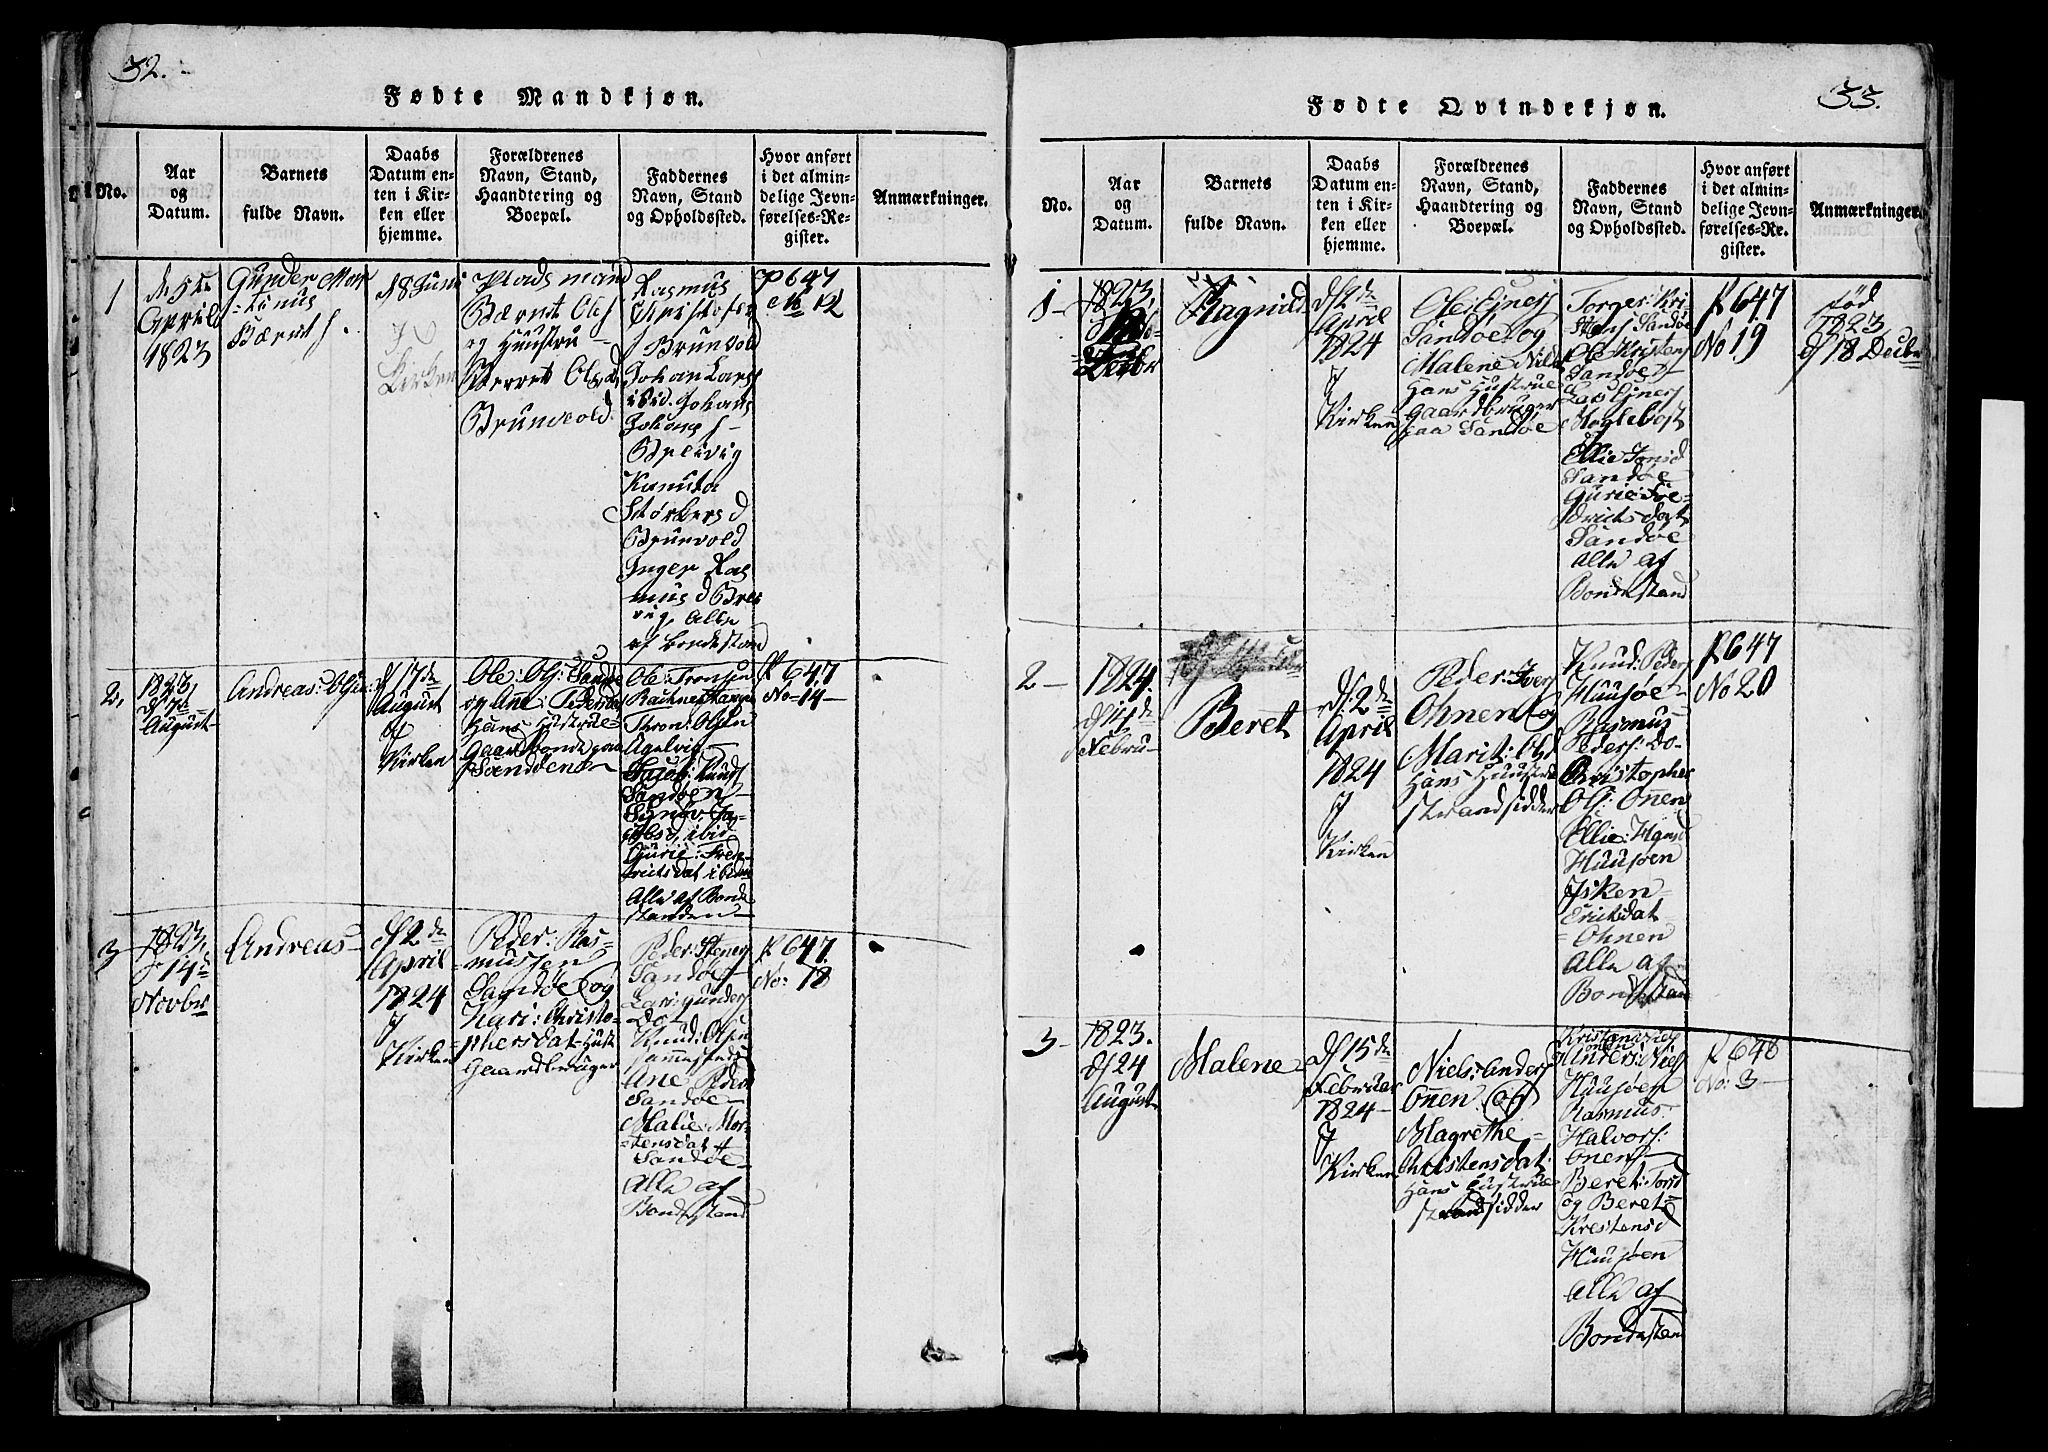 32.
Fødte Mandkjøn.
No.
Aar
og
Datum.
Barnets
fulde Navn.
Daabs
Datum en-
ten i Kir-
ken eller
hjemme.
Forældrenes
Navn, Stand,
Haandtering og
Boepæl.
Faddernes
Navn, Stand
og Opholdssted.
Hvor anført
i det almin-
delige Jevn-
førelses-Re-
gister.
Anmærkninger.
1
April
1823
Gunder Mor
tinus
Bærnt
18 Juni
Kirken
Plads mand
Bærndt Ols
og Huustru
Berret Olsd
Brunvold
Rasmus
Brunvold
Johan Lars
ibid. Johans
Johans
Breivig
Brunvold
Inger Ras
mus d Brei
vig, Alle
af bondestand
P 647
No 12
2,
1823
d 7de
August
Andreas: Olsen
d 17de
August
J
Kirken
Ole: Ols: Sandøe
og Ane: Pedersda
Hans Hustrue
Gaardbonde paa
Sandøen
Ole: Tronsen
Thron: Olsen
Agelvig
Jacob: Knuds
Sandøen
Synøv Ja-
cobsd, ibid
Gurie: Frede-
richsdat ibidm
Alle af Bonde
standen
P 647
No 14
3
1823,
d 14de
Novbr
Andreas
d 2de
April
1824
J
Kirken
Peder: Ras-
mussen
Sandøe og
Kari: Christo-
phersdat Hust
Gaardbruger
Peder: Stener
Sandøe
Lars: Gunders
Do
Knud: Olsen
sammesteds
Ane Peders
Sandøe
Malie: Mor-
tensdat
Sandøe
Alle af
Bondestand
P 647.
No: 18
33.
Fødte Qvindekjøn.
No.
Aar
og
Datum.
Barnets
fulde Navn.
Daabs
Datum en-
ten i Kir-
ken eller
hjemme.
Forældrenes
Navn, Stand,
Haandtering og
Boepæl.
Faddernes
Navn, Stand
og Opholdssted.
Hvor anført
i det almin-
delige Jevn-
førelses-Re-
gister.
Anmærkninger.
1
1823,
Ragnild
d 2de
April
1824
J
Kirken
Ole: Einers
Sandøe og
Malene Nilsd
Hans Hustrue
Gaardbruger
paa Sandøe
Torger: Kri-
stens Sandøe
Ole Kristens
Sandøe
Lars Einers
Møglebost
Ellie Jonsd
Sandøe
Gurie: Fre-
drichsdat
Sandøe
Alle af
Bondestand
P 647
No 19
fød
1823
d 18 Decbr
2
1824.
d 14de
Febru
Beret
d 2de
April
1824
J
Kirken
Peder: Ivers
Ohnen og
Marit: Olsd
Hans Huustrue
strandsidder
Knud: Peders
Huusøe
Rasmus
Peders: Do
Christopher
Ols: Onen
Ellie: Hansd
Huusøen
Isken
Erichsdat
Ohnen
Alle af
Bondestand
P 647
No 20
3
1823.
d 24
August
Malene
d 15de
Februar
1824
J
Kirken
Niels: Anders
Onen og
Magrethe
Christensdat:
Hans Hustrue
strandsidder
Onen
Anders: Niels
Huusøen
Rasmus
Halvors:
Onen
Beret: Torsd
og Beret:
Krestensd
Huusøen
Alle af
Bondestand
P 648
No: 3